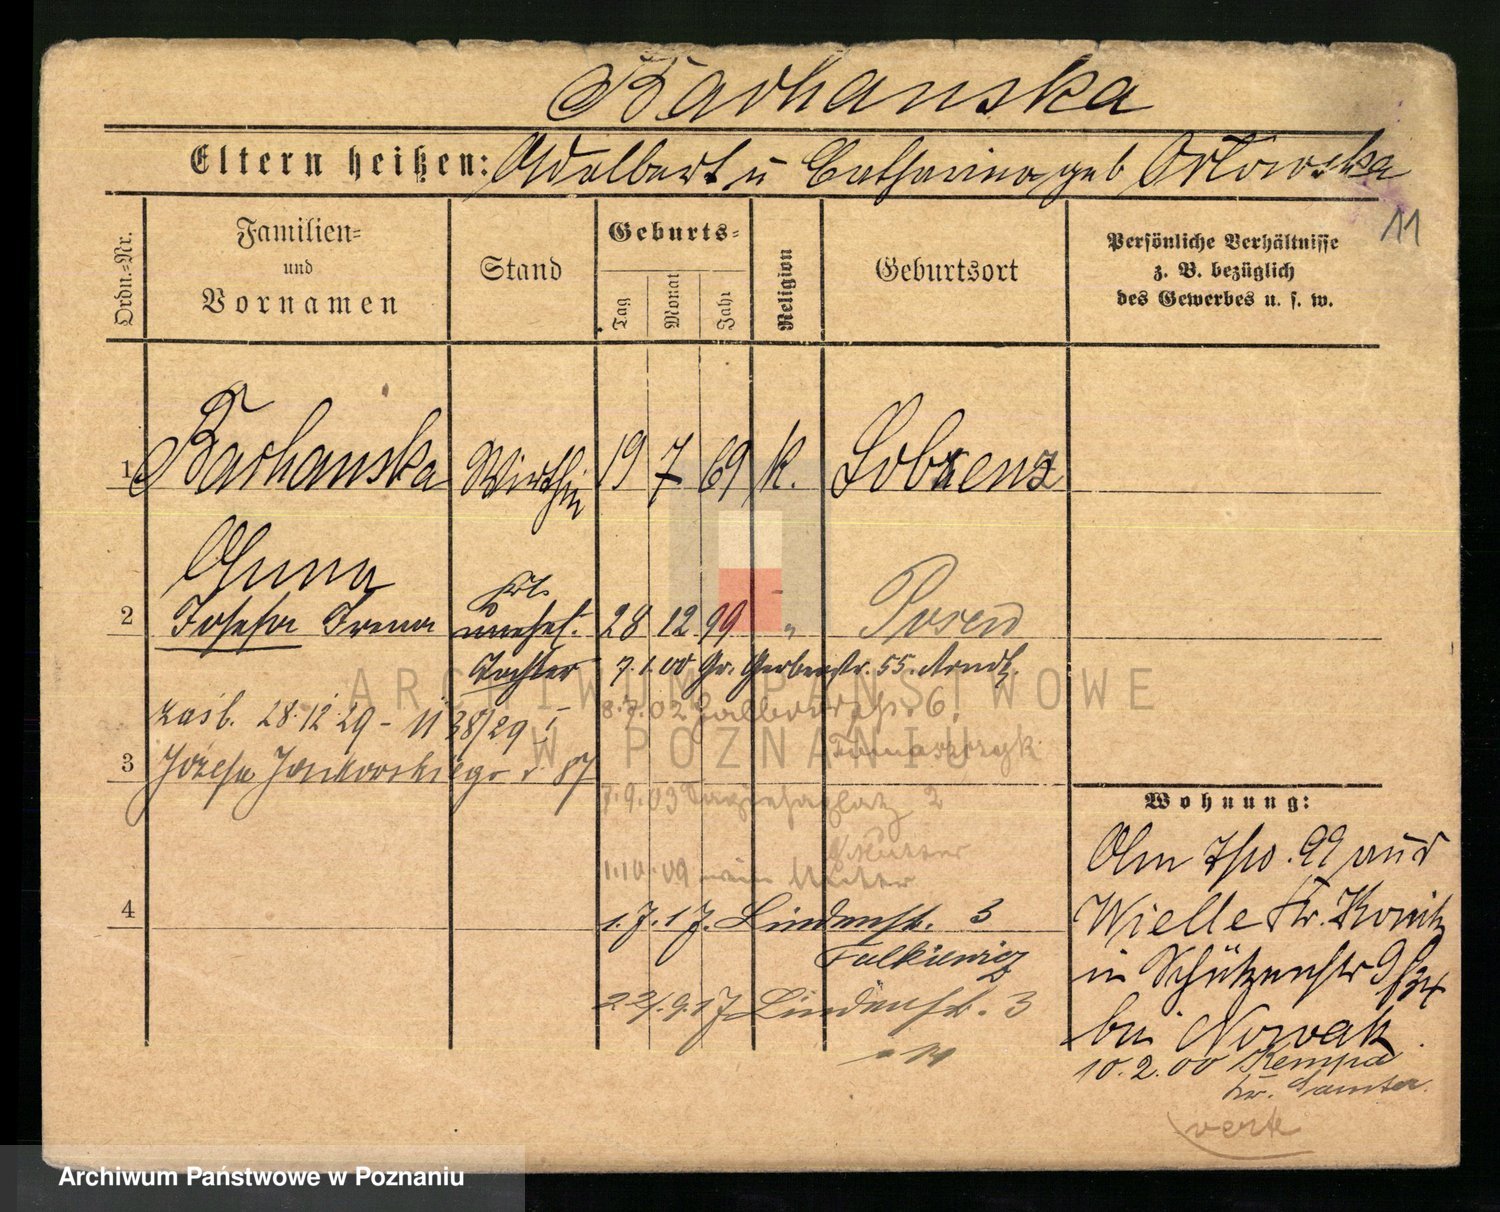 Barhanska
Eltern heißen: Adalbert u Catharina geb Orlowska
11
Ordn.-Nr.
Familien-
und
Vornamen
Stand
Geburts-
Tag
Monat
Jahr
Religion
Geburtsort
Persönliche Verhältnisse
z. B. bezüglich
des Gewerbes u. s. w.
1 Barhanska Wirthin 19 7 69 k. Lobsenz
Anna
2 Josefa Irena unehel. 28 12 99 " Posen
Tochter 7.1.00 Gr. Gerberstr. 55. Arndt.
zaśl. 28.12.29 - 1138/29 z
8.7.02 6.
3 Józefa Jankowskiego r 87
7.9.03 Sapiehaplatz 2
Mutter
1.10.09
4
1.7.17. Lindenstr. 3
Falkiewicz
22.9.17 Lindenstr. 3
Wohnung:
Am 7/10.99 aus
Wielle Kr. Konitz
in Schützenstr
bei Nowak
10.2.00 Kempa
Kr. Samter.
verte
ARCHIWUM PAŃSTWOWE
W POZNANIU
Archiwum Państwowe w Poznaniu